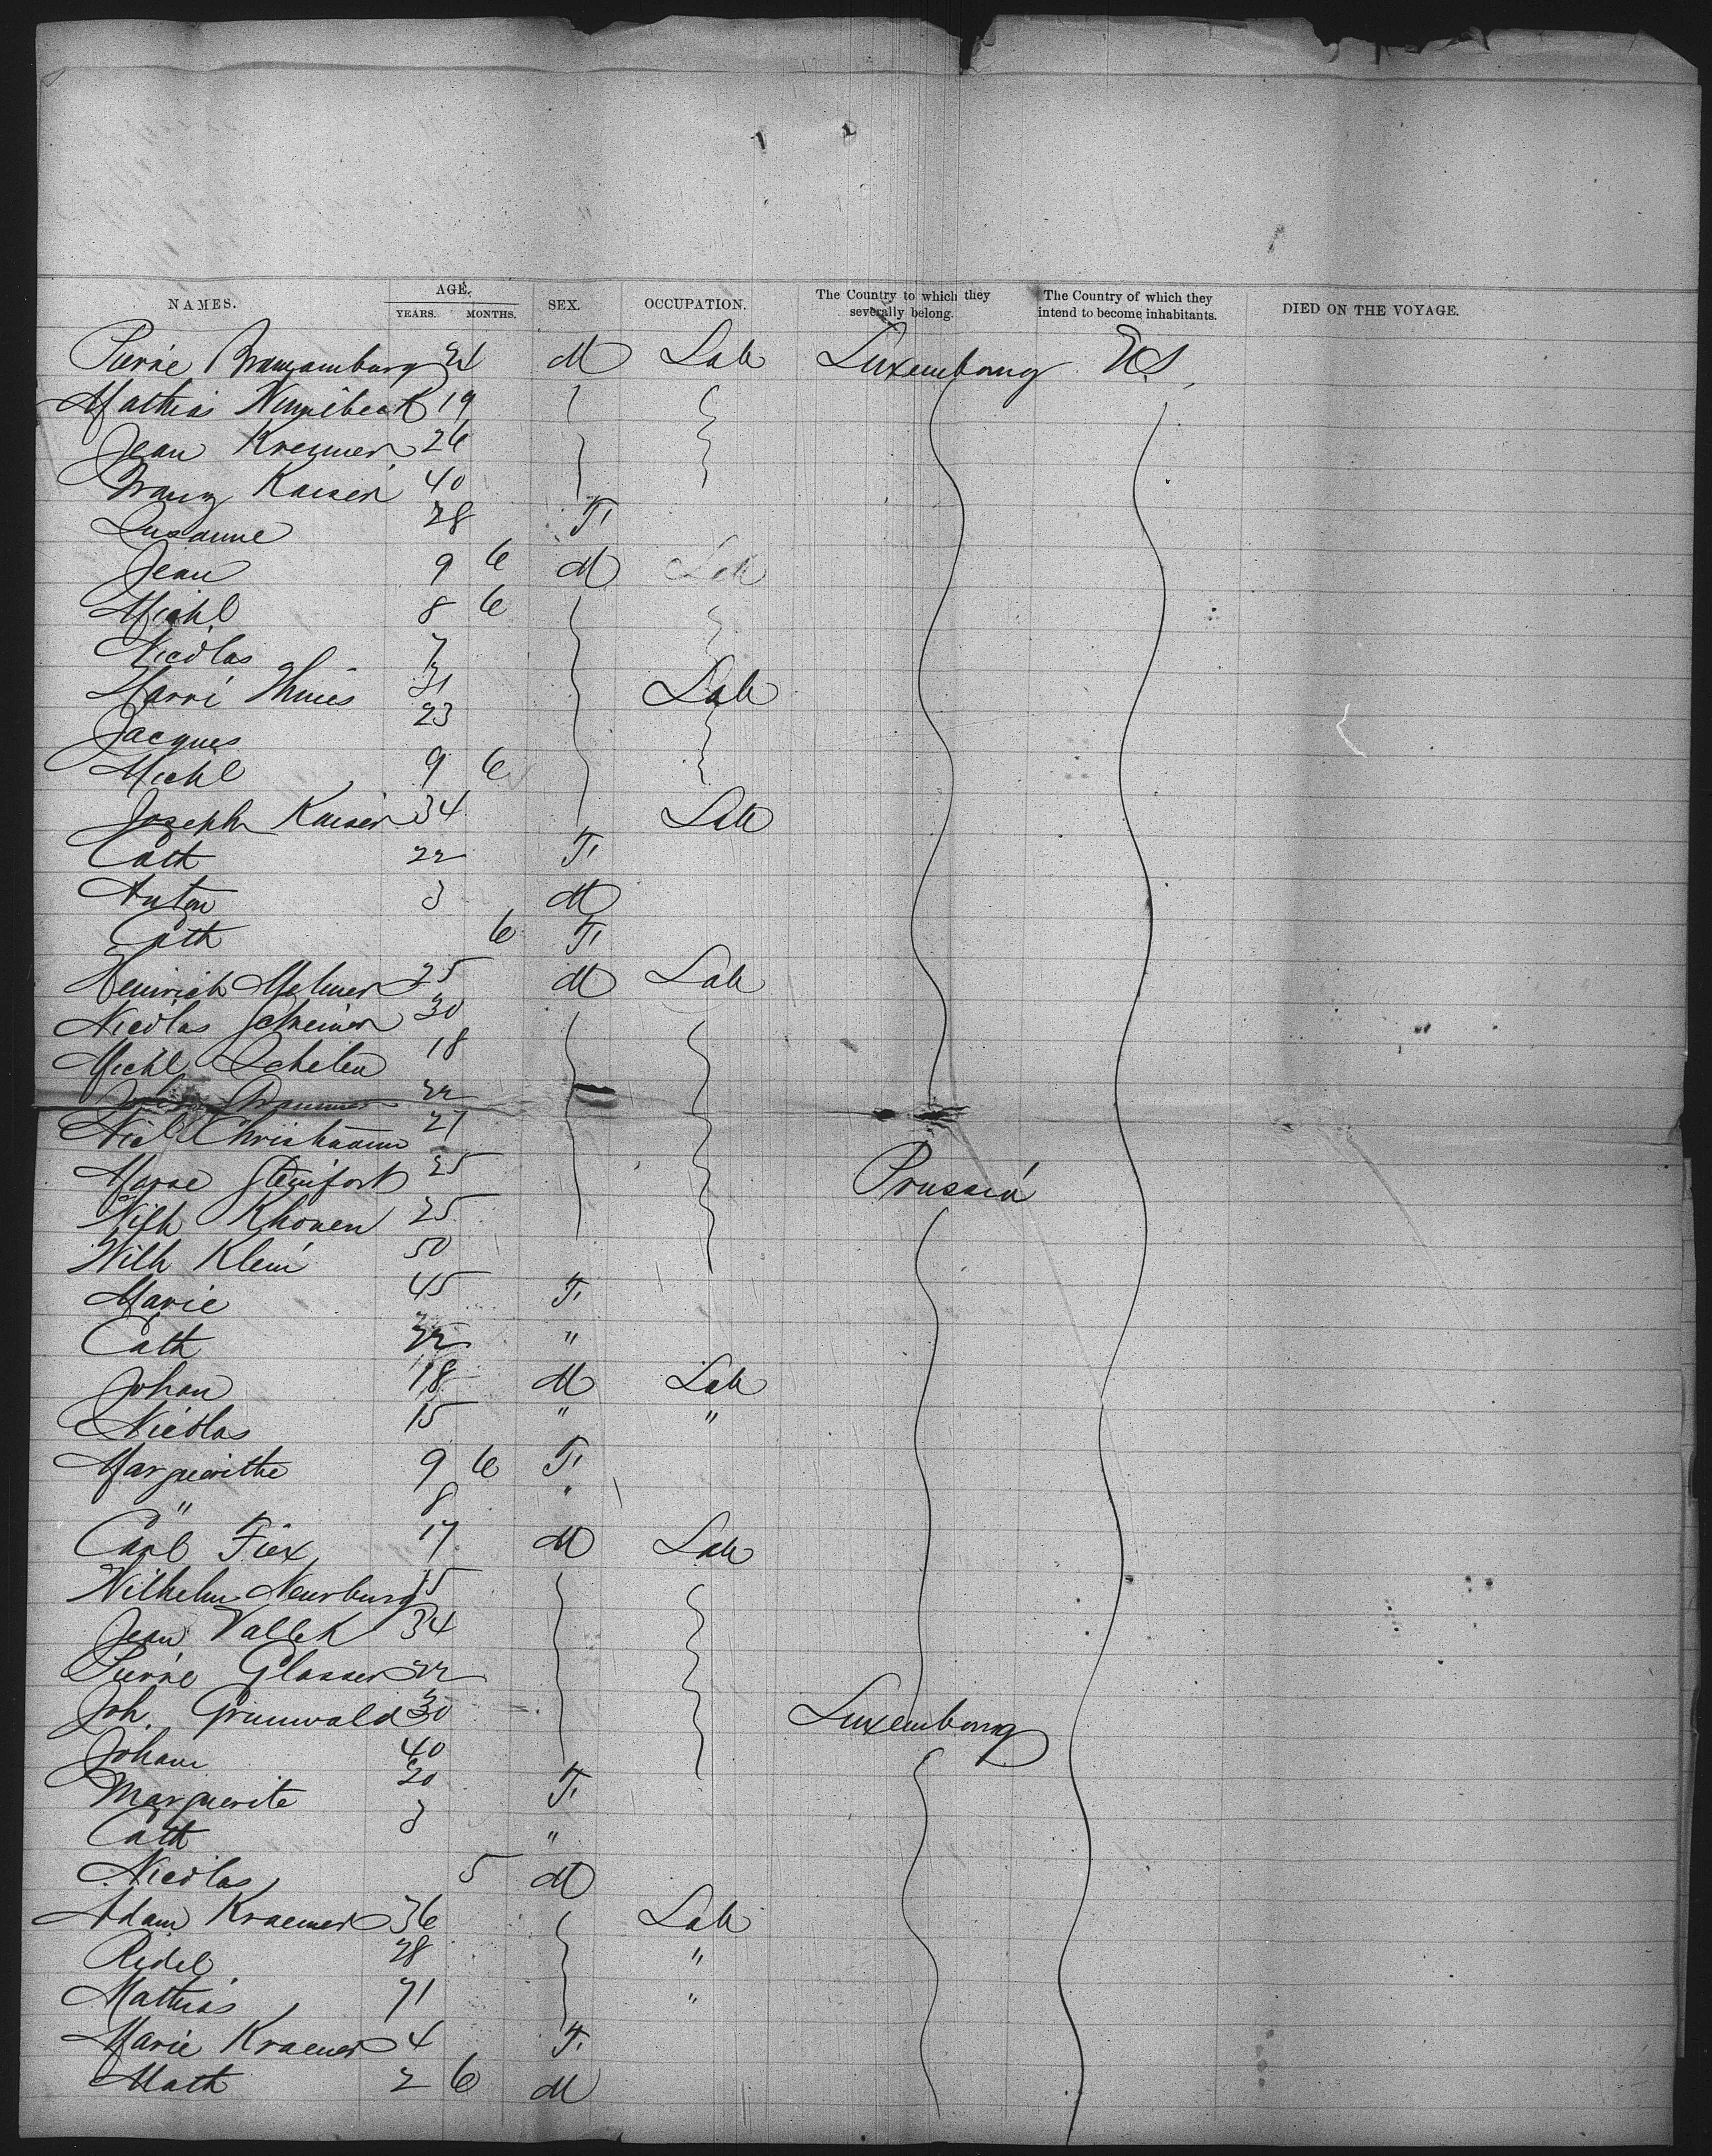 NAMES. AGE. YEARS. MONTHS. SEX. OCCUPATION. The Country to which they severally belong. The Country of which they intend to become inhabitants. DIED ON THE VOYAGE.
Pierre 24 M Lab Luxembourg U.S.
Mathias 19
Jean Kremer 26
Franz Kaiser 40
Susanne 28 F
Jean 9 6 M Lab
Michl 8 6
Nicolas 7
Harri Thines 31 Lab
Jacques 23
Michl 9 6
Joseph Kaiser 34 Lab
Cath 22 F
Anton 3 M
Cath 6 F
Heinrich 25 M Lab
Nicolas Schreiner 30
Michl 18
22
Nicl Christmann 21
Steinfort 25 Prussia
Wilh Khonen 25
Wilh Klein 50
Marie 45 F
Cath 22 "
Johan 18 M Lab
Nicolas 15 " "
Marguerithe 9 6 F
" 8 "
Carl Fiex 17 M Lab
Wilhelm Neurburg 15
Jean Vallek 34
Pierre Glasser 22
Joh. Grunwald 30 Luxembourg
Johann 40
Marguerite 20 F
Cath 3 "
Nicolas 5 M
Adam Kraemer 36 Lab
Redel 28 "
Mathias 71 "
Marie Kraemer 4 F
Math 2 6 M